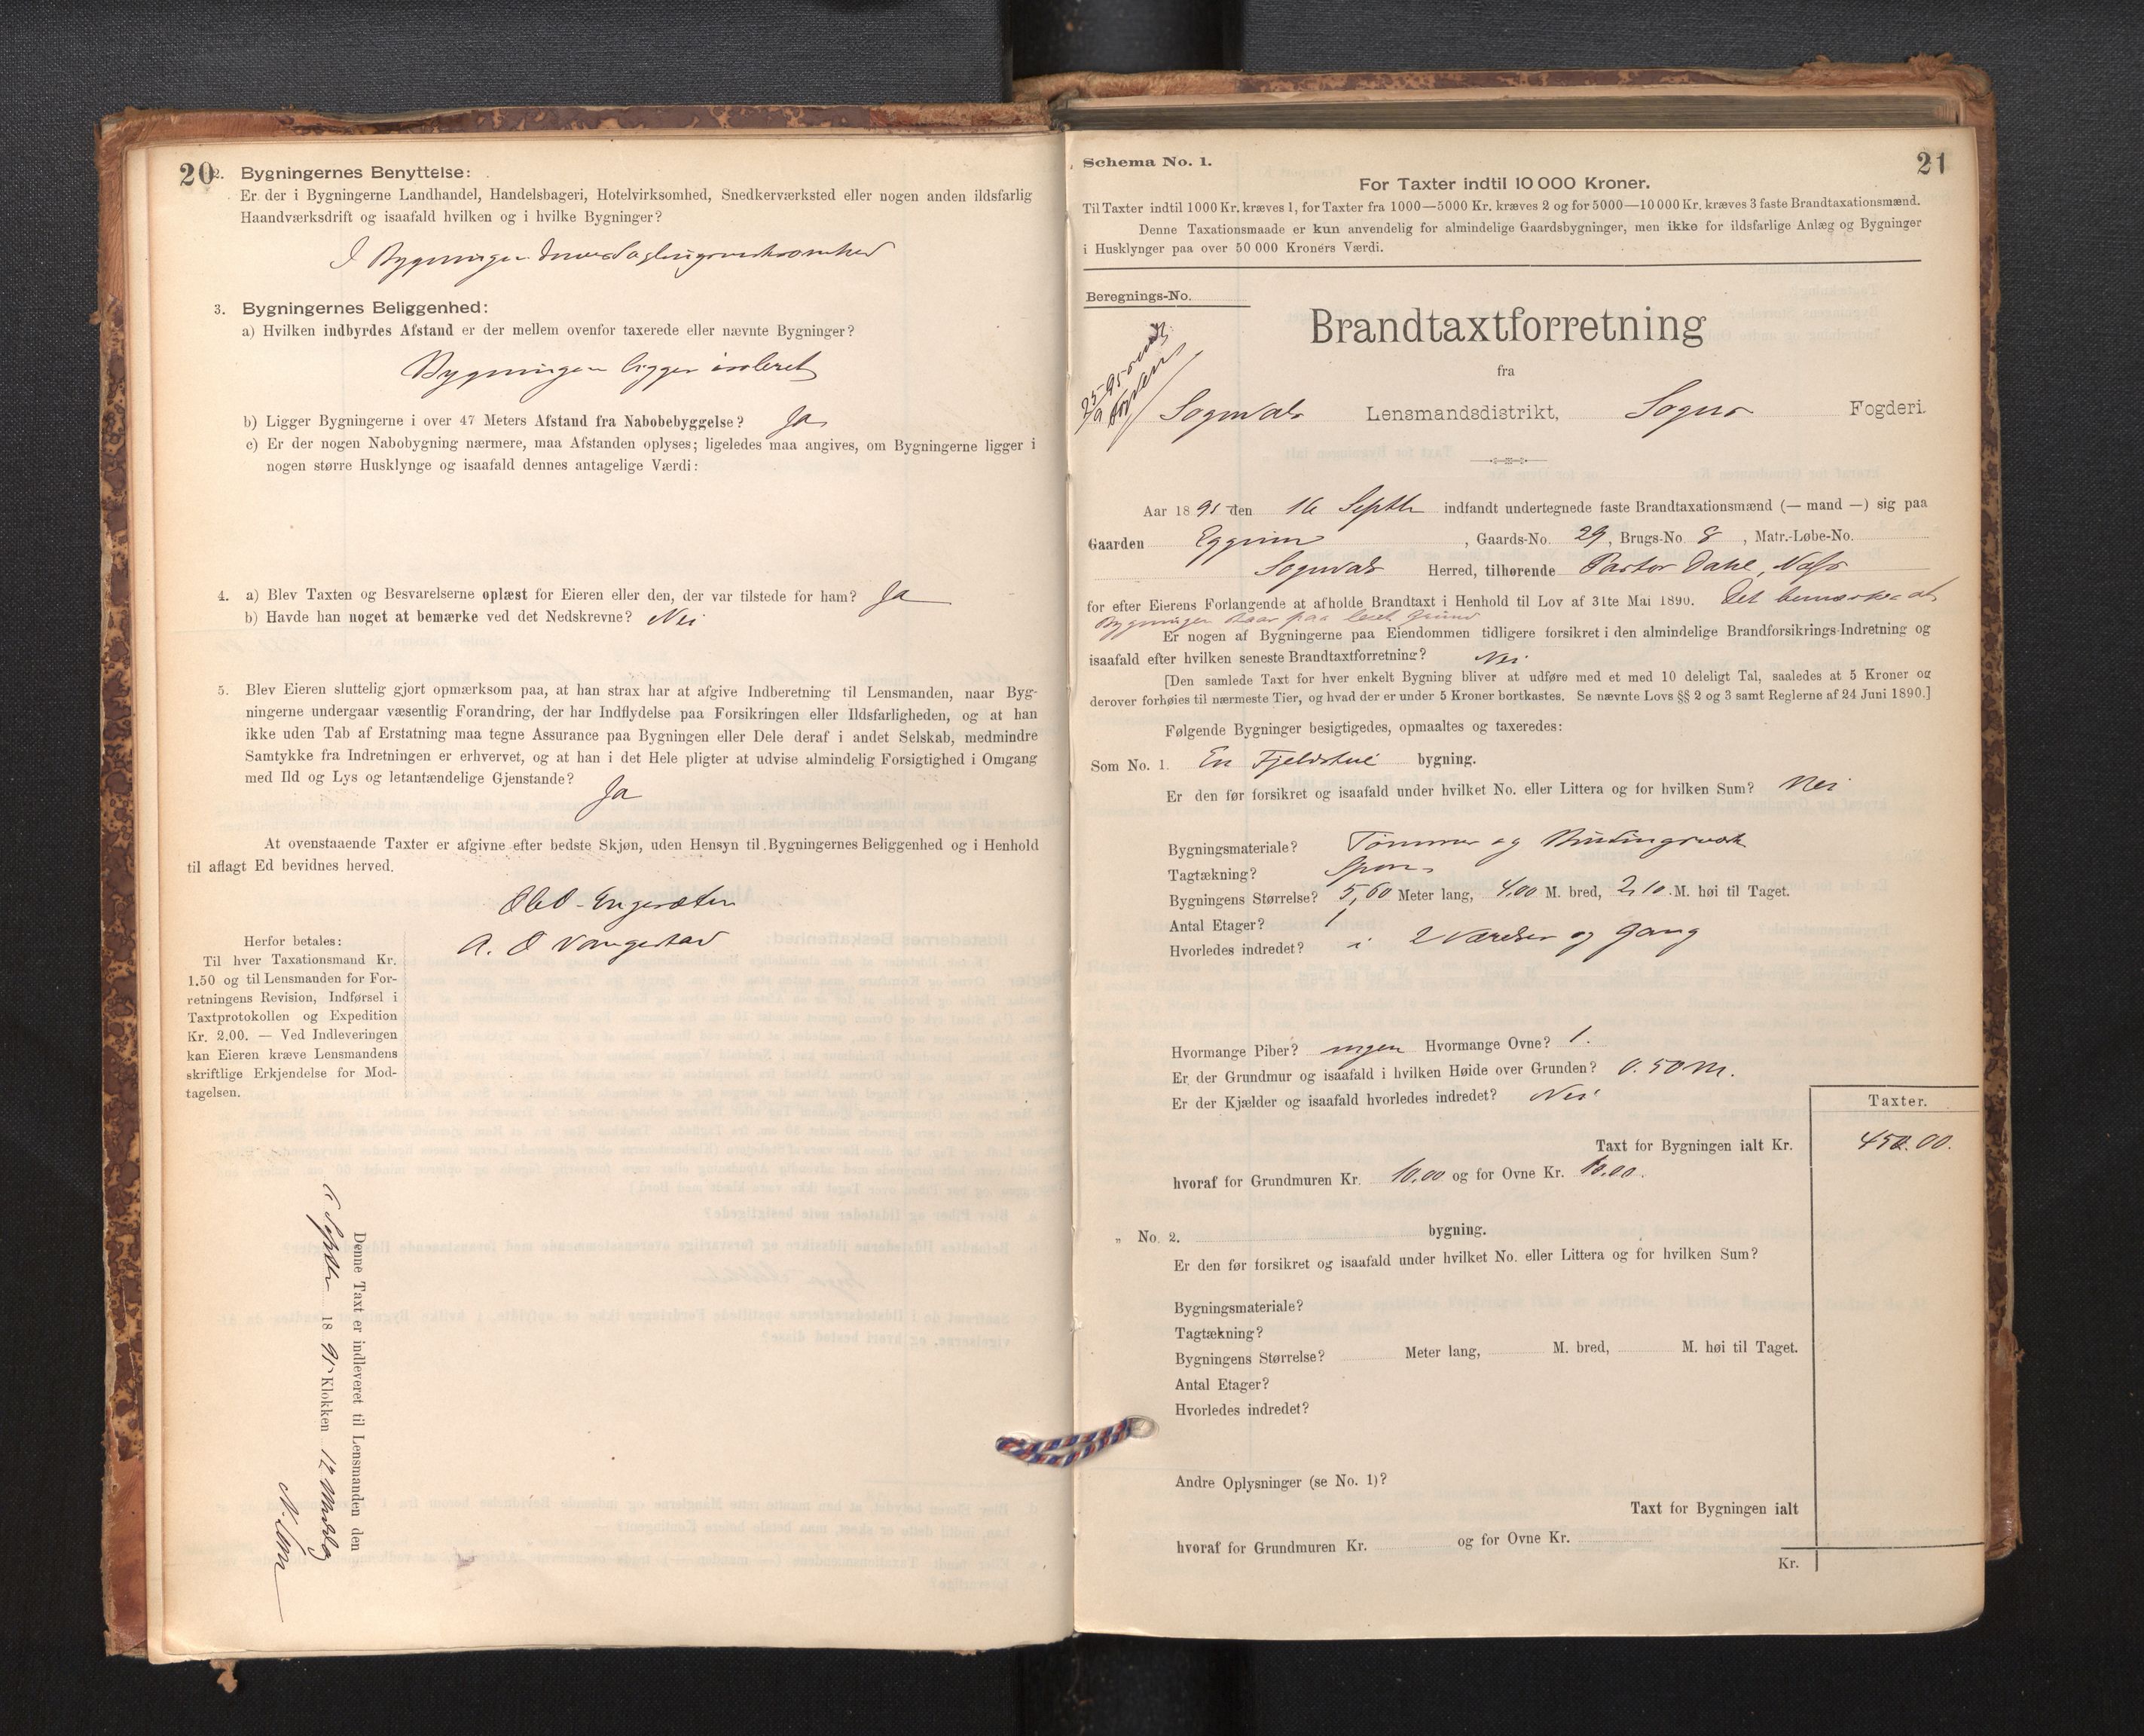 20
2. Bygningernes Benyttelse:
Er der i Bygningerne Landhandel, Handelsbageri, Hotelvirksomhed, Snedkerværksted eller nogen anden ildsfarlig
Haandværksdrift og isaafald hvilken og i hvilke Bygninger?
I Bygningen
3. Bygningernes Beliggenhed:
a) Hvilken indbyrdes Afstand er der mellem ovenfor taxerede eller nævnte Bygninger?
Bygningen ligger isoleret
b) Ligger Bygningerne i over 47 Meters Afstand fra Nabobebyggelse? Ja
c) Er der nogen Nabobygning nærmere, maa Afstanden oplyses; ligeledes maa angives, om Bygningerne ligger i
nogen større Husklynge og isaafald dennes antagelige Værdi:
4. a) Blev Taxten og Besvarelserne oplæst for Eieren eller den, der var tilstede for ham? Ja
b) Havde han noget at bemærke ved det Nedskrevne? Nei
5. Blev Eieren sluttelig gjort opmærksom paa, at han strax har at afgive Indberetning til Lensmanden, naar Byg-
ningerne undergaar væsentlig Forandring, der har Indflydelse paa Forsikringen eller Ildsfarligheden, og at han
ikke uden Tab af Erstatning maa tegne Assurance paa Bygningen eller Dele deraf i andet Selskab, medmindre
Samtykke fra Indretningen er erhvervet, og at han i det Hele pligter at udvise almindelig Forsigtighed i Omgang
med Ild og Lys og letantændelige Gjenstande?
Ja
At ovenstaaende Taxter er afgivne efter bedste Skjøn, uden Hensyn til Bygningernes Beliggenhed og i Henhold
til aflagt Ed bevidnes herved.
A. O Vangestad
Herfor betales:
Til hver Taxationsmand Kr.
1.50 og til Lensmanden for For-
retningens Revision, Indførsel i
Taxtprotokollen og Expedition
Kr. 2.00. — Ved Indleveringen
kan Eieren kræve Lensmandens
skriftlige Erkjendelse for Mod-
tagelsen.
Denne Taxt er indleveret til Lensmanden den
Septbr 1895 Klokken 12 Middag
21
Schema No. 1.
For Taxter indtil 10 000 Kroner.
Til Taxter indtil 1000 Kr. kræves 1, for Taxter fra 1000—5000 Kr. kræves 2 og for 5000—10 000 Kr. kræves 3 faste Brandtaxationsmænd.
Denne Taxationsmaade er kun anvendelig for almindelige Gaardsbygninger, men ikke for ildsfarlige Anlæg og Bygninger
i Husklynger paa over 50 000 Kroners Værdi.
Beregnings-No.
Brandtaxtforretning
fra
Sogndals Lensmandsdistrikt, Sogns Fogderi.
Aar 1895 den 16 Septbr indfandt undertegnede faste Brandtaxationsmænd (— mand —) sig paa
Gaarden Eggum, Gaards-No. 29, Brugs-No. 8, Matr.-Løbe-No.
Sogndals Herred, tilhørende Pastor Dahl, Næs
for efter Eierens Forlangende at afholde Brandtaxt i Henhold til Lov af 31te Mai 1890. Det bemærkes at
Bygningen staar paa leiet Grund
Er nogen af Bygningerne paa Eiendommen tidligere forsikret i den almindelige Brandforsikrings-Indretning og
isaafald efter hvilken seneste Brandtaxtforretning? Nei
[Den samlede Taxt for hver enkelt Bygning bliver at udføre med et med 10 deleligt Tal, saaledes at 5 Kroner og
derover forhøies til nærmeste Tier, og hvad der er under 5 Kroner bortkastes. Se nævnte Lovs §§ 2 og 3 samt Reglerne af 24 Juni 1890.]
Følgende Bygninger besigtigedes, opmaaltes og taxeredes:
Som No. 1. En Fjeldstue bygning.
Er den før forsikret og isaafald under hvilket No. eller Littera og for hvilken Sum? Nei
Bygningsmateriale? Tømmer og Bindingsværk
Tagtækning? Spon
Bygningens Størrelse? 5,60 Meter lang, 4,00 M. bred, 2,10 M. høi til Taget.
Antal Etager? 1
Hvorledes indredet? i 2 Værelser og Gang
Hvormange Piber? ingen Hvormange Ovne? 1.
Er der Grundmur og isaafald i hvilken Høide over Grunden? 0.50 m.
Er der Kjælder og isaafald hvorledes indredet? Nei
Taxter.
Taxt for Bygningen ialt Kr. 450.00.
hvoraf for Grundmuren Kr. 10.00 og for Ovne Kr. 10.00.
„ No. 2. bygning.
Er den før forsikret og isaafald under hvilket No. eller Littera og for hvilken Sum?
Bygningsmateriale?
Tagtækning?
Bygningens Størrelse? Meter lang, M. bred, M. høi til Taget.
Antal Etager?
Hvorledes indredet?
Andre Oplysninger (se No. 1)?
Taxt for Bygningen ialt
hvoraf for Grundmuren Kr. og for Ovne Kr.
Kr.